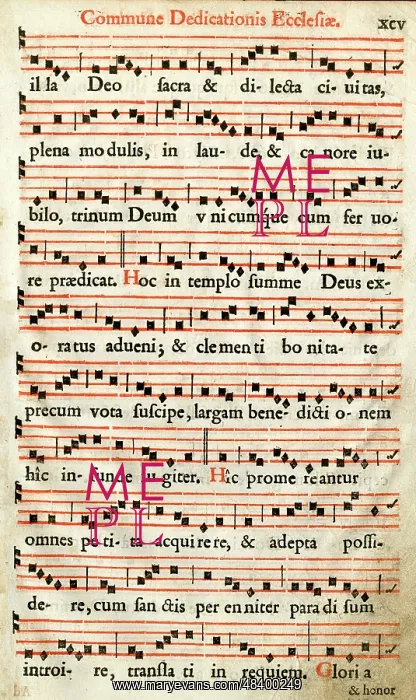 Commune Dedicationis Ecclesiæ.
xcv
illa Deo sacra & di- lecta ci- uitas,
plena modulis, in lau- de & ca nore iu-
bilo, trinum Deum v nicumq́ue cum fer uo-
re prædicat. Hoc in templo summe Deus ex-
o- ratus adueni; & clementi bo nita- te
precum vota suscipe, largam bene- dicti o- nem
hîc in- funde iugiter. Hîc prome reantur
omnes pe ti- ta acquirere, & adepta possi-
de- re, cum san ctis per enniter para di sum
introi- re, transla ti in requiem. Glori a
& honor
ME
PL
ME
PL
www.maryevans.com/48400249